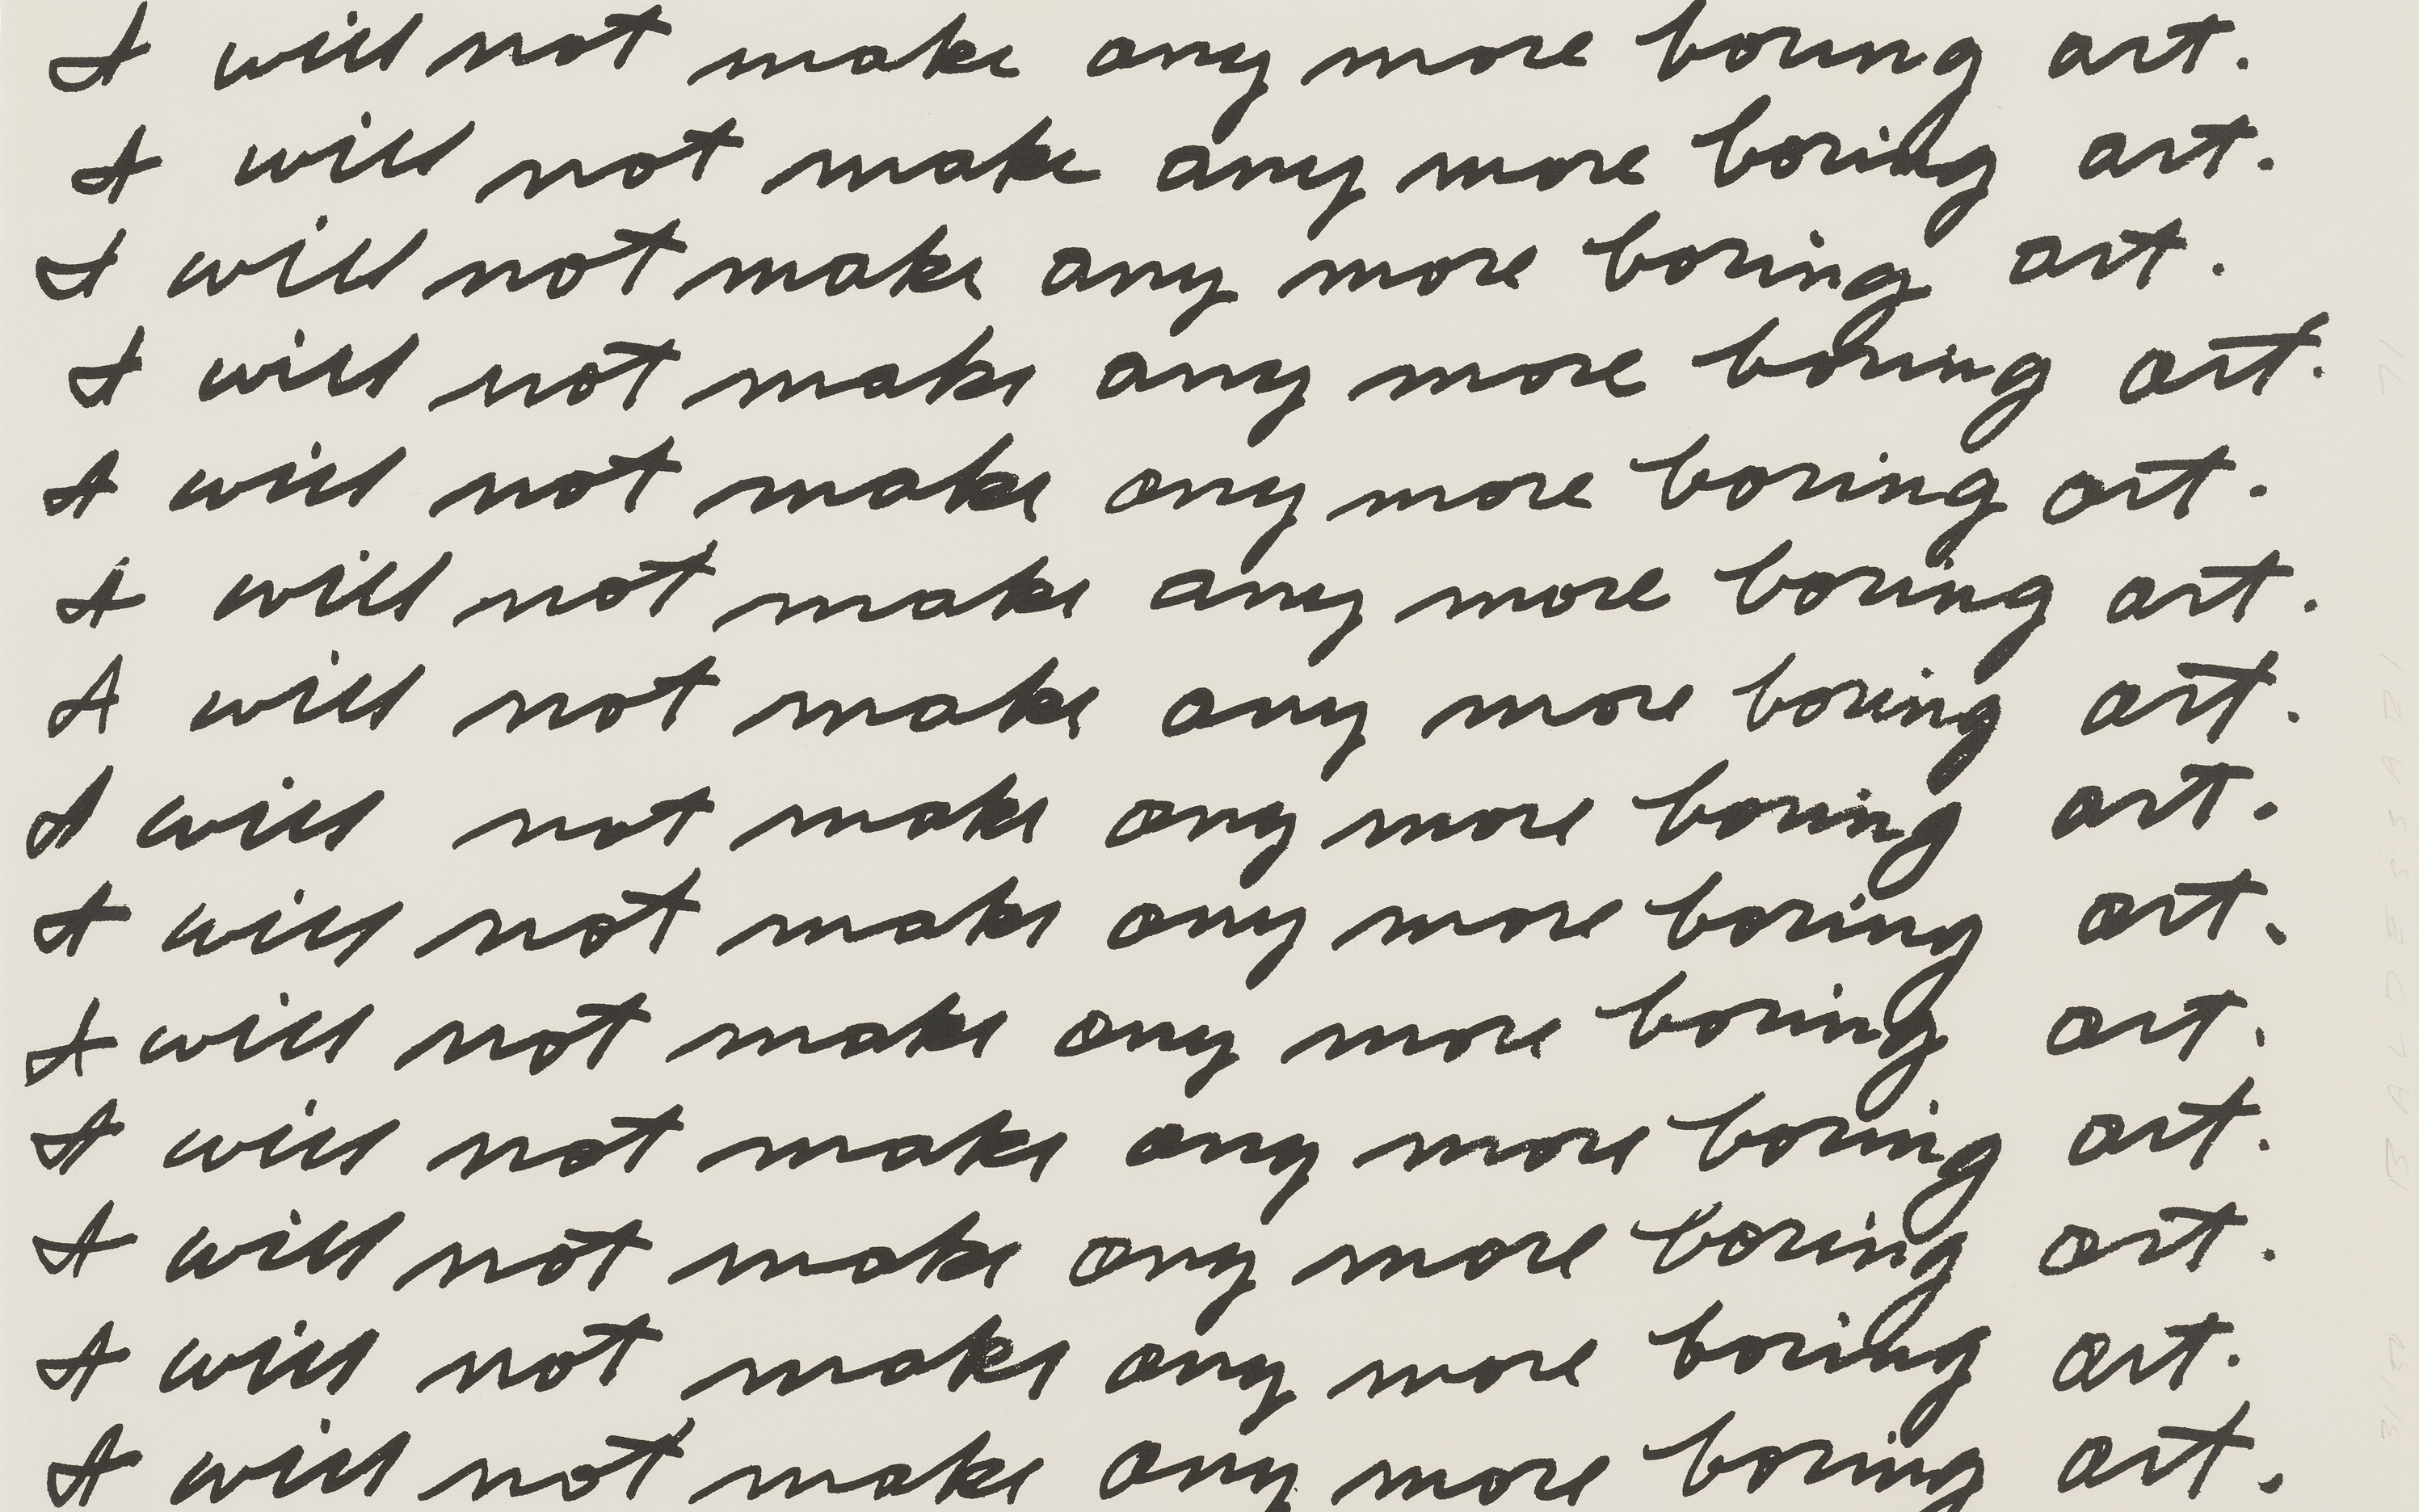 I will not make any more boring art.
I will not make any more boring art.
I will not make any more boring art.
I will not make any more boring art.
I will not make any more boring art.
I will not make any more boring art.
I will not make any more boring art.
I will not make any more boring art.
I will not make any more boring art.
I will not make any more boring art.
I will not make any more boring art.
I will not make any more boring art.
I will not make any more boring art.
I will not make any more boring art.
31/50 BALDESSARI 71